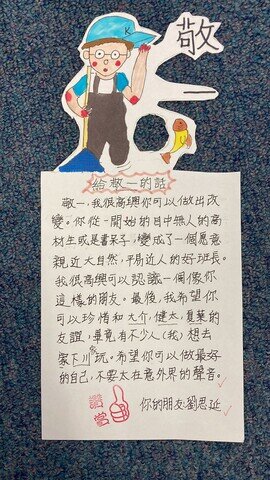 K
敬一
給敬一的話
敬一,我很高興你可以做出改
變。你從一開始的目中無人的高
材生或是書呆子,變成了一個願意
親近大自然,平易近人的好班長。
我很高興可以認識一個像你
這樣的朋友。最後,我希望你
可以珍惜和大介,健太,夏葉的
友誼,畢竟有不少人(我)想去
你
家下川玩。希望你可以做最好
的自己,不要太在意外界的聲音。
讚賞
你的朋友劉思延